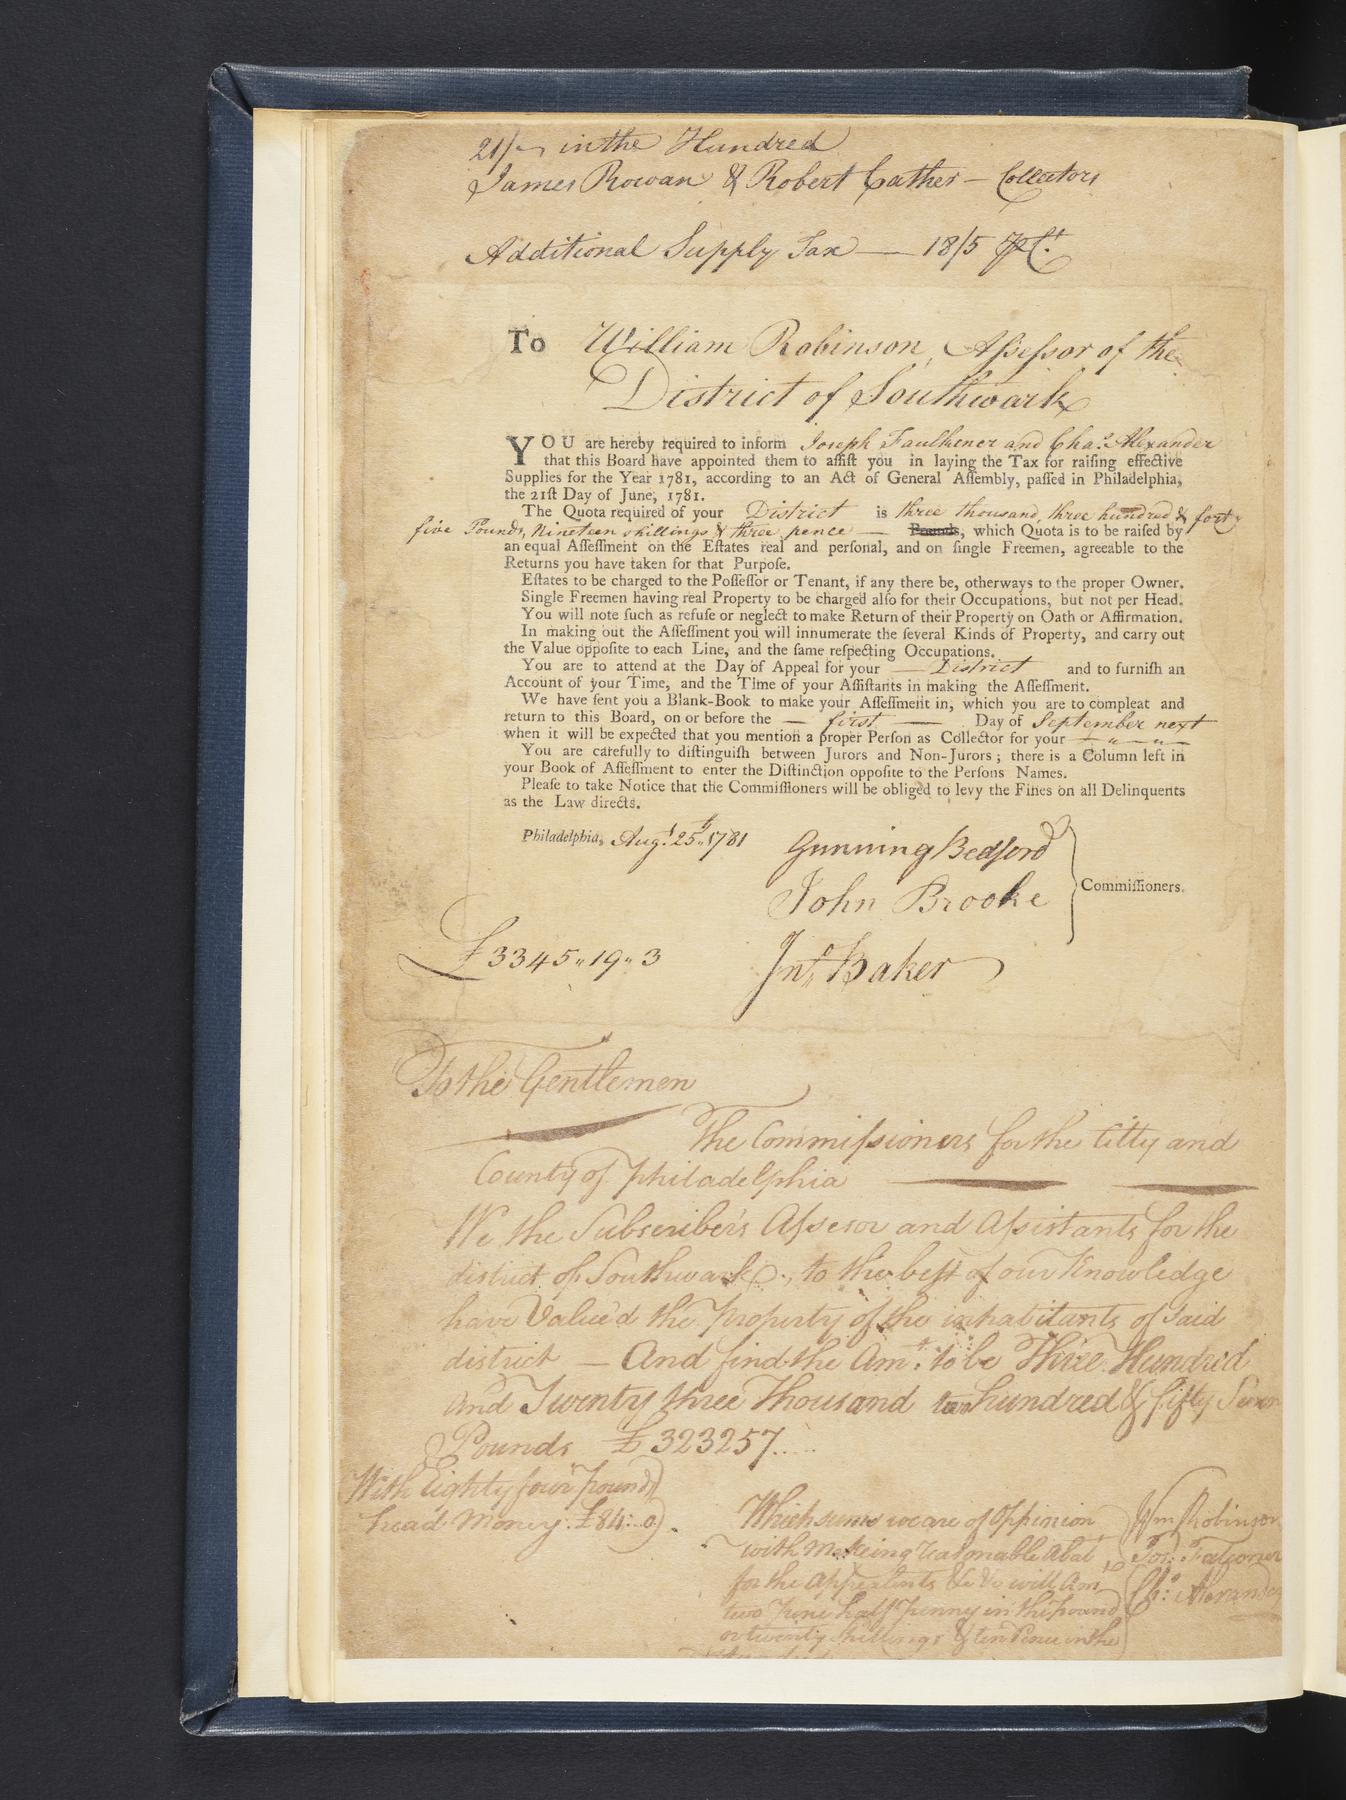 21/- in the Hundred
James Rowan & Robert Cather - Collectors
Additional Supply Tax — 18/5 ⅌ Ct.
To William Robinson, Aſseſsor of the
District of Southwark
YOU are hereby required to inform Joseph Faulkener and Chas. Alexander
that this Board have appointed them to aſſiſt you in laying the Tax for raiſing effective
Supplies for the Year 1781, according to an Act of General Aſſembly, paſſed in Philadelphia,
the 21ſt Day of June, 1781.
The Quota required of your District is three thousand, three hundred & forty
five Pounds, Nineteen shillings & three pence — Pounds, which Quota is to be raiſed by
an equal Aſſeſſment on the Eſtates real and perſonal, and on ſingle Freemen, agreeable to the
Returns you have taken for that Purpoſe.
Eſtates to be charged to the Poſſeſſor or Tenant, if any there be, otherways to the proper Owner.
Single Freemen having real Property to be charged alſo for their Occupations, but not per Head.
You will note ſuch as refuſe or neglect to make Return of their Property on Oath or Affirmation.
In making out the Aſſeſſment you will innumerate the ſeveral Kinds of Property, and carry out
the Value oppoſite to each Line, and the ſame reſpecting Occupations.
You are to attend at the Day of Appeal for your — District and to furniſh an
Account of your Time, and the Time of your Aſſiſtants in making the Aſſeſſment.
We have ſent you a Blank-Book to make your Aſſeſſment in, which you are to compleat and
return to this Board, on or before the — first — Day of September next
when it will be expected that you mention a proper Perſon as Collector for your — " — " —
You are carefully to diſtinguiſh between Jurors and Non-Jurors; there is a Column left in
your Book of Aſſeſſment to enter the Diſtinction oppoſite to the Perſons Names.
Pleaſe to take Notice that the Commiſſioners will be obliged to levy the Fines on all Delinquents
as the Law directs.
Philadelphia, Augt. 25th, 1781
Gunning Bedford
John Brooke
Commiſſioners.
£3345,, 19,, 3
Jno. Baker
To the Gentlemen
The Commiſsioners for the Citty and
County of Philadelphia
We the Subscriber's Aſsesor and Aſsistants for the
district of Southwark, to the beſt of our Knowledge
have Value'd the Property of the inhabitants of said
district — And find the Amt. to be Three Hundred
and Twenty three Thousand two hundred & fifty Seven
Pounds £323257....
With Eighty four pounds
head Money. £84:..0)
Which sum we are of Oppinion
with Makeing reasonable Abat
for the Appealents &c &c will Am
two Pence half Penny in the pound
or twenty Shillings & ten Pence in the
Wm Robinson
Jos: Falconer
Chs: Alexander